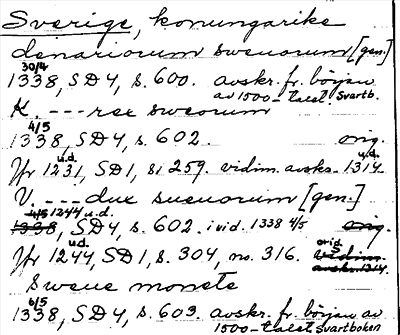 Sverige, konungarike
denariorum sweuorum [gen.]
30/4
1338, SD4, s. 600. avskr. fr. början
av 1500-talet. Svartb.
K. --- rex sweorum
4/5
1338, SD4, s. 602. orig.
Jfr 1231 u.d., SD1, s. 259. vidim. avskr. 1314 u.d.
V. --- dux sueuorum [gen.]
4/5 1244 u.d.
1338, SD4, s. 602. i vid. 1338 4/5 orig.
Jfr 1244 u.d., SD1, s. 304, no. 316. orig vidim.
avskr. 1314.
Sweue monete
6/5
1338, SD4, s. 603. avskr. fr. början av
1500-talet Svartboken